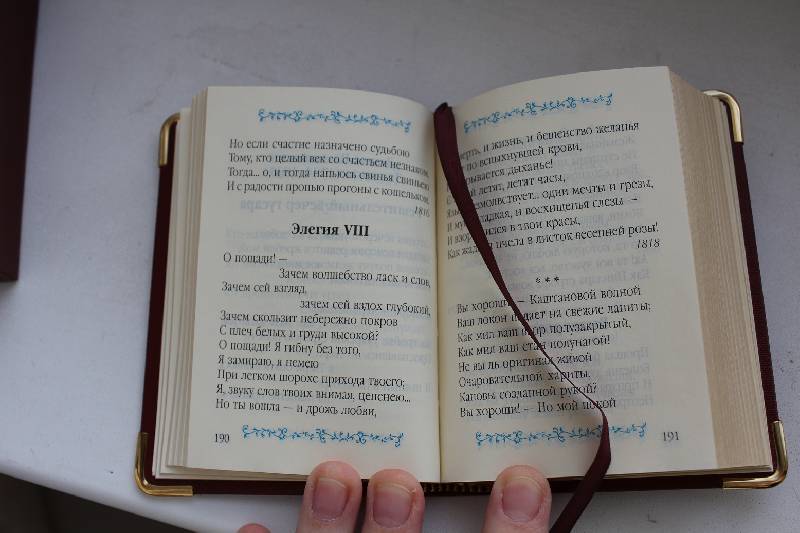 Но если счастие назначено судьбою
Тому, кто целый век со счастьем незнаком,
Тогда... о, и тогда напьюсь свинья свиньею
И с радости пропью прогоны с кошельком.
1816
Элегия VIII
О пощади! —
Зачем волшебство ласк и слов,
Зачем сей взгляд,
зачем сей вздох глубокий,
Зачем скользит небережно покров
С плеч белых и груди высокой?
О пощади! Я гибну без того,
Я замираю, я немею
При легком шорохе прихода твоего;
Я, звуку слов твоих внимая, цепенею...
Но ты вошла — и дрожь любви,
190
и жизнь, и бешенство желанья
по вспыхнувшей крови,
дыханье!
летят, летят часы,
одни мечты и грезы,
и восхищенья слезы —
И взор в твои красы,
Как пчелы в листок весенней розы!
1818
* * *
Вы хороши! — Каштановой волной
Ваш локон падает на свежие ланиты;
Как мил ваш взор полузакрытый,
Как мил ваш стан полунагой!
Не вы ль оригинал живой
Очаровательной хариты,
Кановы созданной рукой?
Вы хороши! — Но мой покой
191